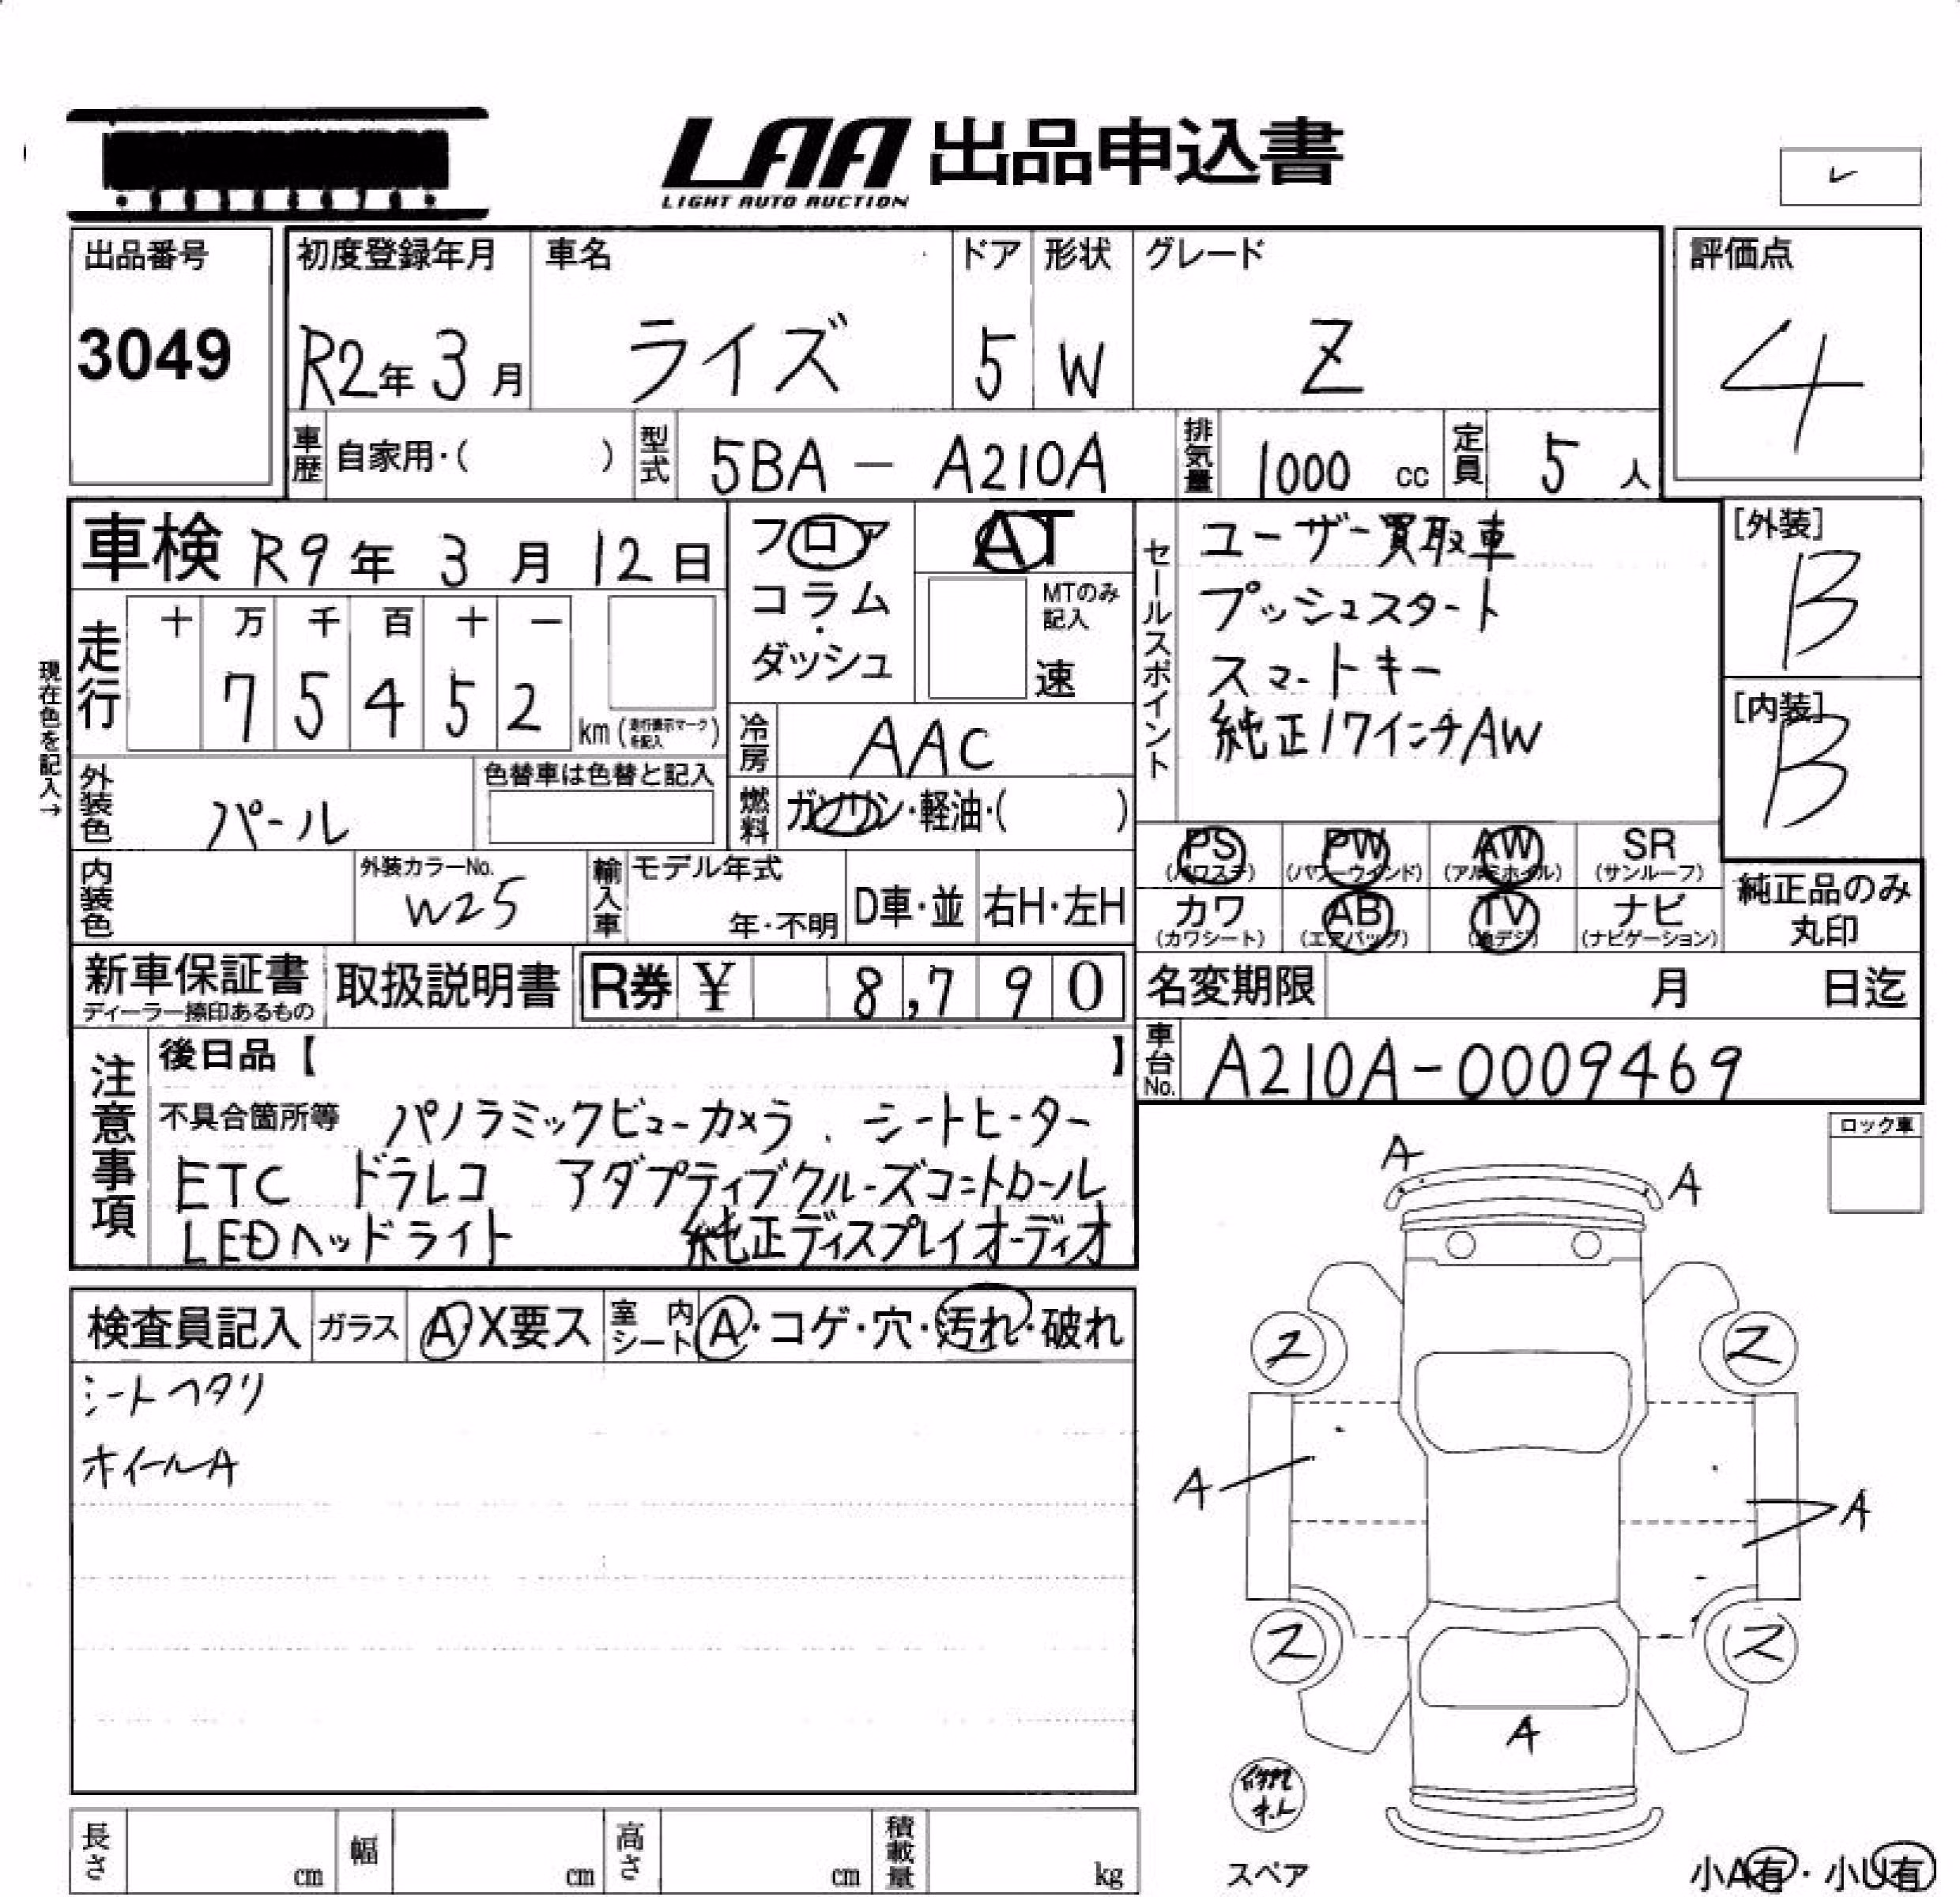 LAA 出品申込書
LIGHT AUTO AUCTION
出品番号
3049
初度登録年月 車名 ドア 形状 グレード
R2年 3月 ライズ 5 W Z
評価点
4
車歴 自家用・( ) 型式 5BA - A210A 排気量 1000 cc 定員 5 人
車検 R9年 3月 12日
フロア
コラム
・
ダッシュ
AT
MTのみ
記入
速
セールスポイント
ユーザー買取車
プッシュスタート
スマートキー
純正17インチAW
[外装]
B
[内装]
B
現在色を記入→
走行
十 万 千 百 十 一
7 5 4 5 2 km (走行表示マークを記入)
冷房 AAC
外装色 パール
色替車は色替と記入
燃料 ガソリン・軽油・( )
PS PW AW SR
(パワステ) (パワーウインド) (アルミホイル) (サンルーフ)
カワ AB TV ナビ
(カワシート) (エアバッグ) (地デジ) (ナビゲーション)
純正品のみ
丸印
内装色 外装カラーNo.
W25
輸入車 モデル年式
年・不明 D車・並 右H・左H
新車保証書
ディーラー捺印あるもの
取扱説明書 R券 ¥ 8,790
名変期限 月 日迄
車台No. A210A-0009469
注意事項
後日品【 】
不具合箇所等 パノラミックビューカメラ. シートヒーター
ETC ドラレコ アダプティブクルーズコントロール
LEDヘッドライト 純正ディスプレイオーディオ
ロック車
検査員記入 ガラス A・X要ス 室内シート A・コゲ・穴・汚れ・破れ
シートヘタリ
ホイールA
A
A
ス
ス
A
A
ス
ス
A
スペア
小A有・小U有
長さ cm 幅 cm 高さ cm 積載量 kg